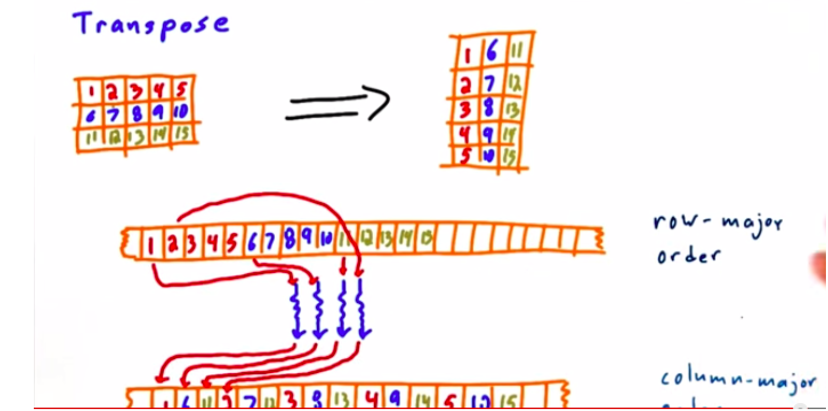 Transpose
1 2 3 4 5
6 7 8 9 10
11 12 13 14 15
1 6 11
2 7 12
3 8 13
4 9 14
5 10 15
1 2 3 4 5 6 7 8 9 10 11 12 13 14 15
row-major
order
column-major
1 6 11 2 7 12 3 8 13 4 9 14 5 10 15